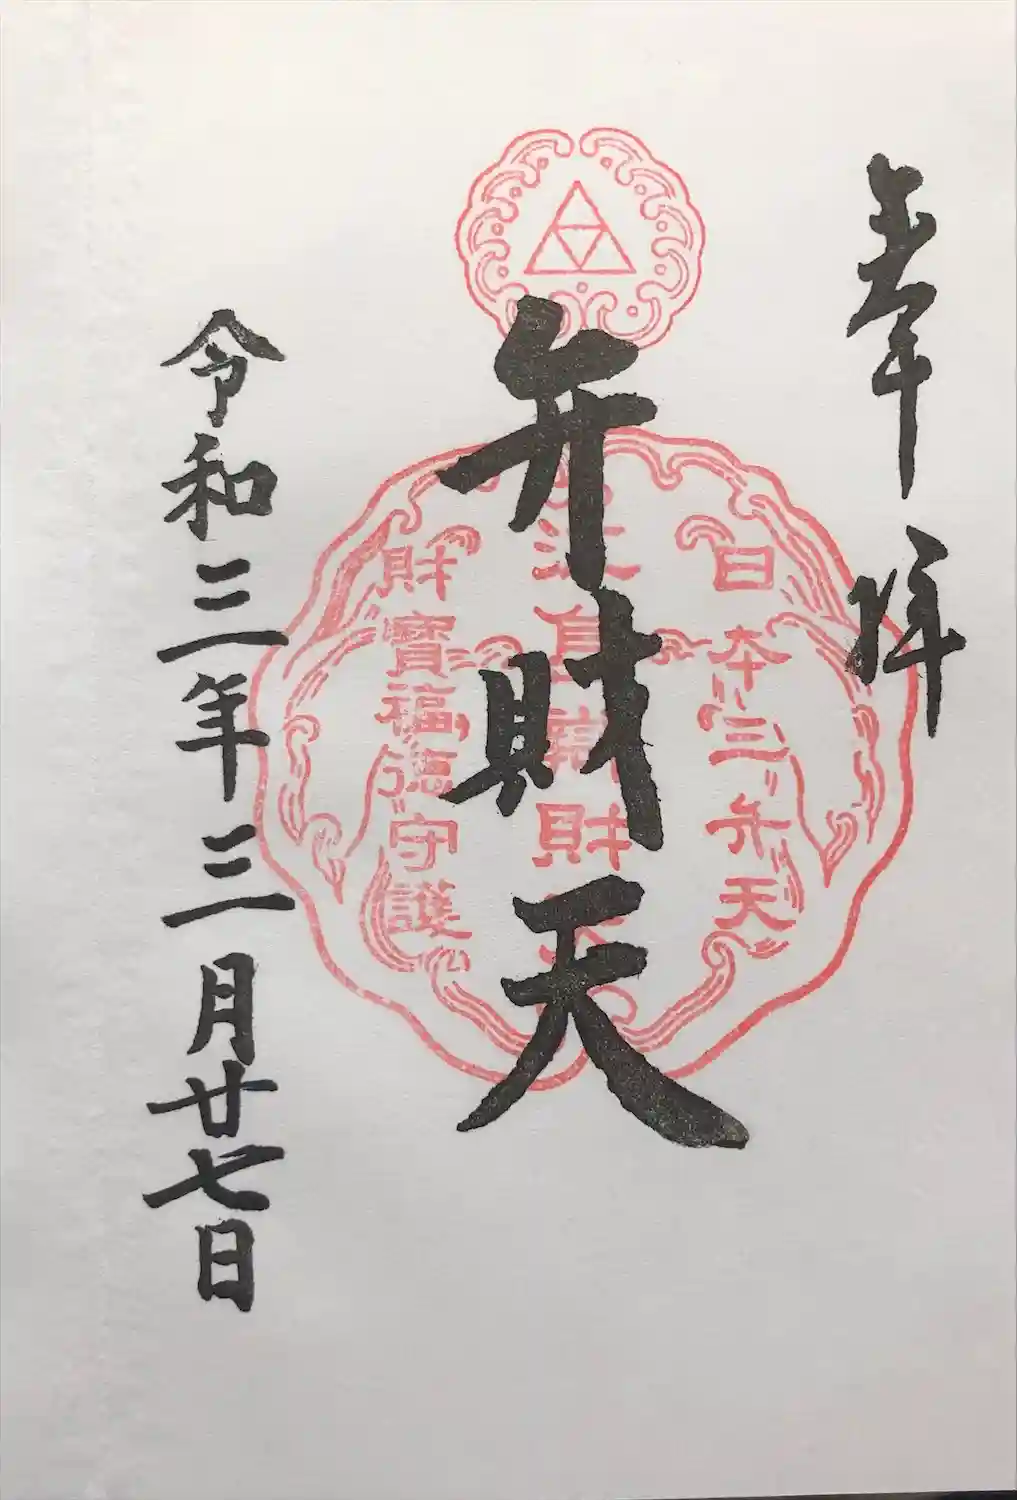 奉拝
弁財天
令和三年三月廿七日
日本三弁天
財寶福徳守護